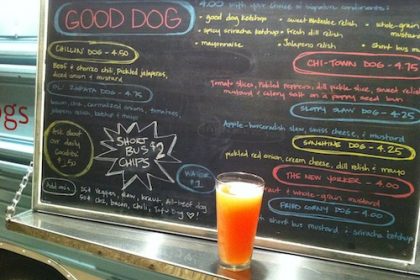 GOOD DOG
4.00 with your choice of signature condiments:
• good dog ketchup
• spicy sriracha ketchup
• mayonnaise
• sweet relish
• fresh dill relish
• jalapeno relish
• whole-grain mustard
• short bus
CHILLIN' DOG - 4.50
Beef & chorizo chili, pickled jalapenos, diced onion & mustard
OL' ZAPATA DOG - 4.75
bacon, caramelized onions, tomatoes, jalapeno relish, ketchup & mayo
Ask about our daily
SHORT BUS CHIPS $2
WATER $1
Add ons:
veggies, slaw, kraut, All-beef dog
bacon, chili, Tofu Dog
CHI-TOWN DOG - 4.75
Tomato slices, pickled peppers, dill pickle slice, sweet relish
mustard and celery salt on a poppy seed bun
SLOPPY SLAW DOG - 4.25
Apple-horseradish slaw, swiss cheese, & mustard
SUNSHINE DOG - 4.25
pickled red onion, cream cheese, dill relish & mayo
THE NEW YORKER - 4.00
kraut & whole-grain mustard
FRITO CORNY DOG - 4.00
short bus mustard & sriracha ketchup
ogs